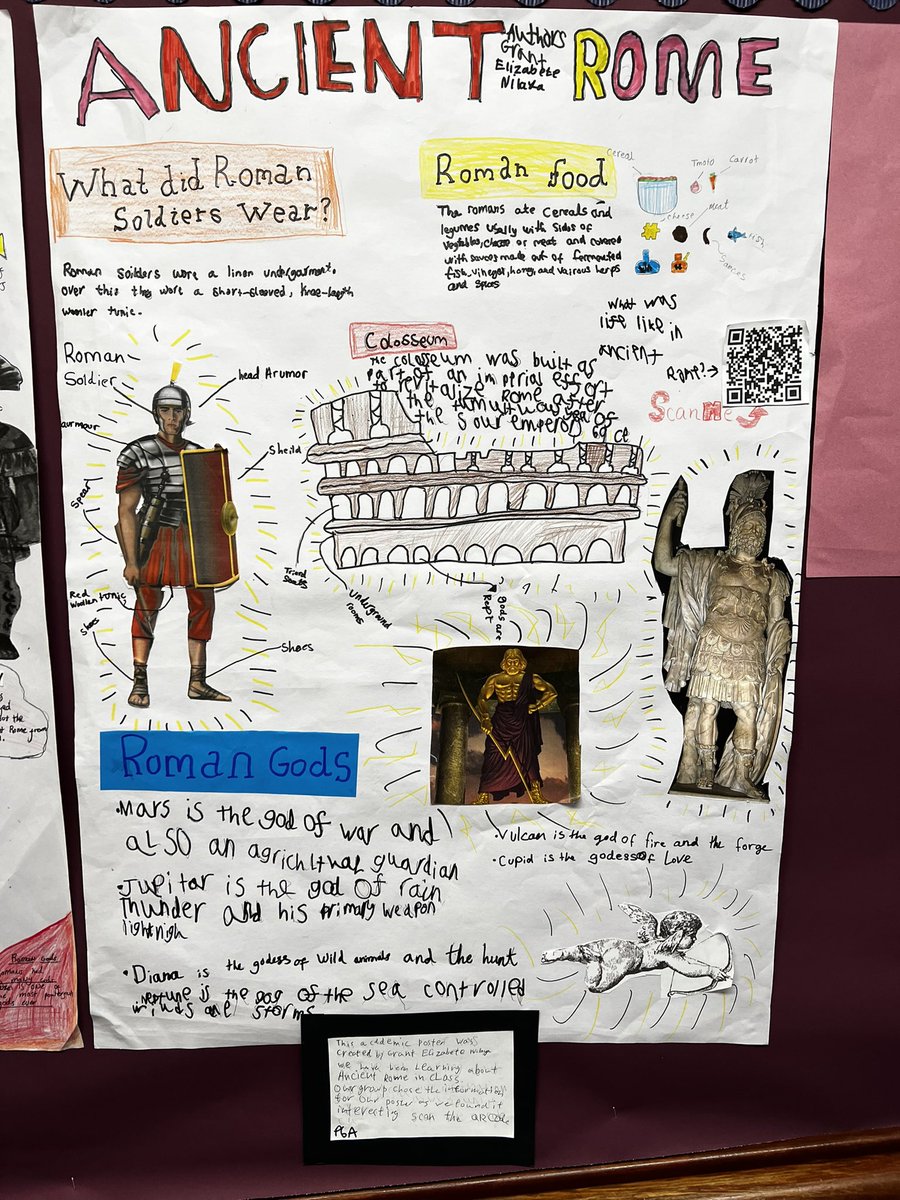 ANCIENT ROME
Authors
Grant
Elizabete
Nilaxa
What did Roman
Soldiers Wear?
Roman Soilders wore a linen undergarment.
over this they wore a short-sleeved, knee-length
woonler tunic.
Roman
Soldier
head Arumor
aurmour
Sheild
Spear
Red
Woollen tonic
Shoes
Shoes
Roman food
The romans ate cereals and
legumes usally with sides of
vegtables, cheese or meat and covered
with sauces made out of fermented
fish, vinegar, honey, and vairous herps
and spices
Cereal
Tmoto
Carrot
cheese
Meat
Fish
Sauces
what was
life like in
ancient
Rome?→
Scan Me
Colosseum
The colosseum was built as
part of an imperial effort
to revitalize Rome after
the tumultwous year of
the four emperors
69 CE
underground
rooms
gods are
Roman Gods
•Mars is the god of war and
ALSO an agrichltwal guardian
•Jupitar is the god of rain
Thunder and his primary weapon
lightnigh
•Diana is the godess of wild animals and the hunt
neptune is the god of the sea controlled
winds and storms
•Vulcan is the god of fire and the forge
•Cupid is the godess of Love
This academic poster was
created by Grant Elizabete Nilaxa
we have been learning about
Ancient Rome in class
Our group chose the information
for our poster as we found it
interesting scan the QR code
P6A